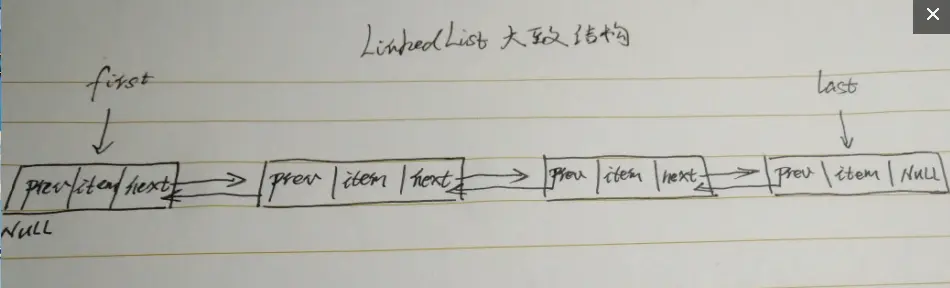 LinkedList 大致结构
first
last
prev item next
prev item next
prev item next
prev item NULL
NULL